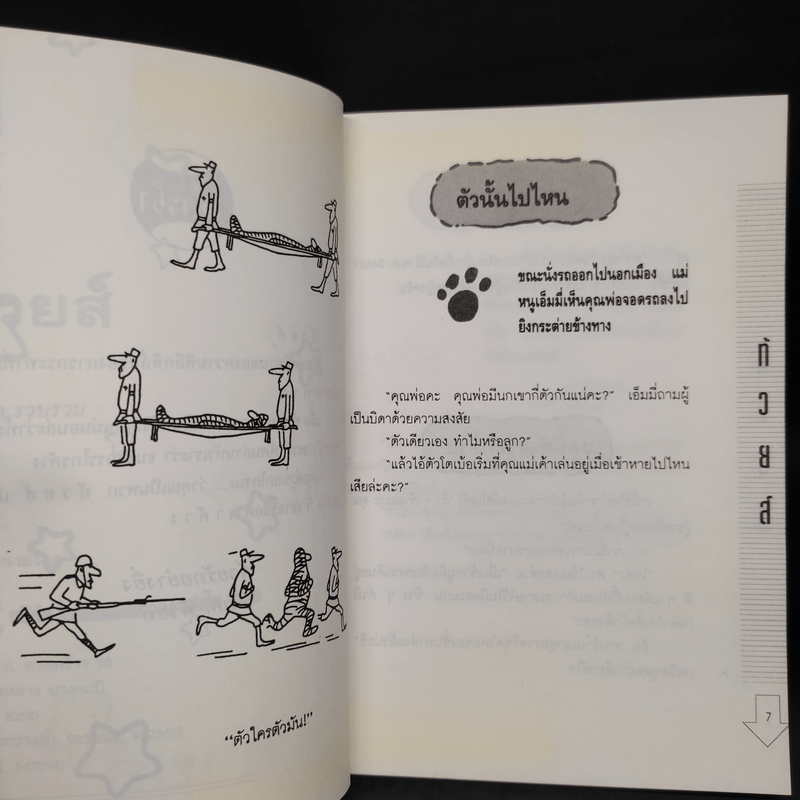 "ตัวใครตัวมัน!"
ตัวนั้นไปไหน
ขณะนั่งรถออกไปนอกเมือง แม่
หนูเอ็มมี่เห็นคุณพ่อจอดรถลงไป
ยิงกระต่ายข้างทาง
"คุณพ่อคะ คุณพ่อมีนกเขากี่ตัวกันแน่คะ?" เอ็มมี่ถามผู้
เป็นบิดาด้วยความสงสัย
"ตัวเดียวเอง ทำไมหรือลูก?"
"แล้วไอ้ตัวโตเบ้อเริ่มที่คุณแม่เค้าเล่นอยู่เมื่อเช้าหายไปไหน
เสียล่ะคะ?"
ก๊
ว
ย
ส์
7